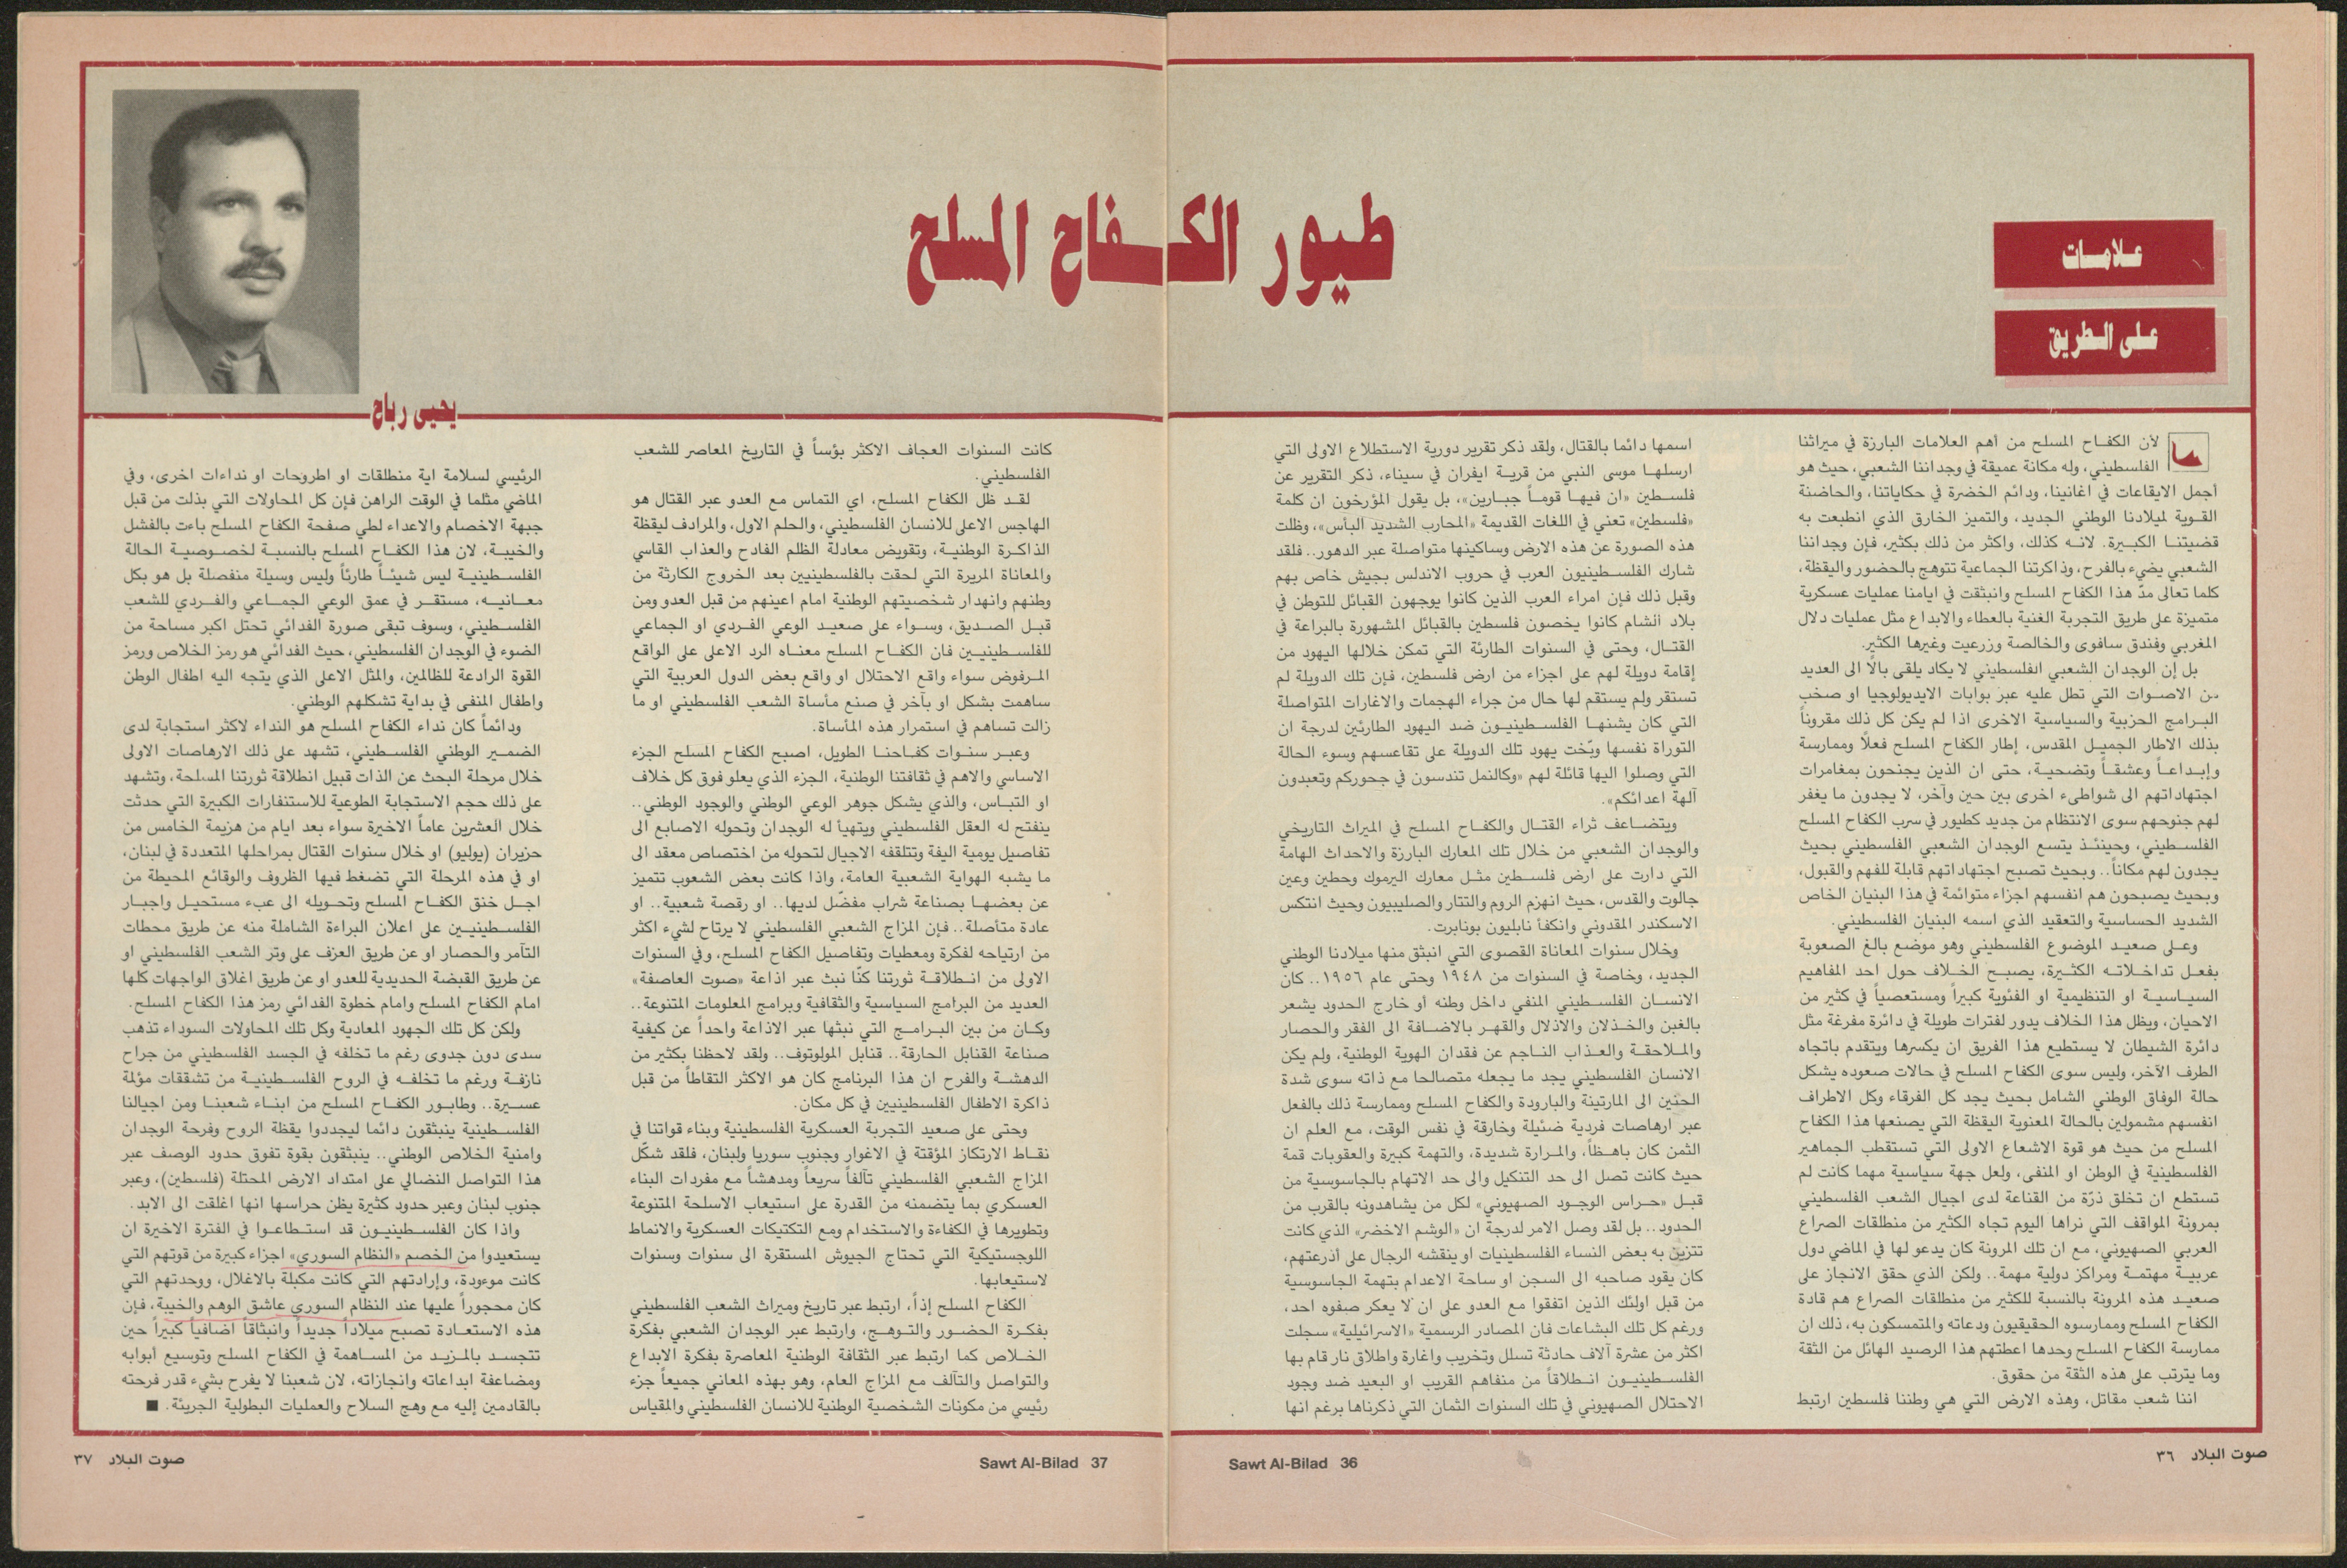 علامات
على الطريق
طيور الكفاح المسلح
يحيى رباح
لأن الكفاح المسلح من أهم العلامات البارزة في ميراثنا
الفلسطيني، وله مكانة عميقة في وجداننا الشعبي، حيث هو
أجمل الايقاعات في اغانينا، ودائم الخضرة في حكاياتنا، والحاضنة
القوية لميلادنا الوطني الجديد، والتميز الخارق الذي انطبعت به
قضيتنا الكبيرة. لانه كذلك، واكثر من ذلك بكثير، فإن وجداننا
الشعبي يضيء بالفرح، وذاكرتنا الجماعية تتوهج بالحضور واليقظة،
كلما تعالى مدّ هذا الكفاح المسلح وانبثقت في ايامنا عمليات عسكرية
متميزة على طريق التجربة الغنية بالعطاء والابداع مثل عمليات دلال
المغربي وفندق سافوى والخالصة وزرعيت وغيرها الكثير.
بل إن الوجدان الشعبي الفلسطيني لا يكاد يلقى بالًا الى العديد
من الاصوات التي تطل عليه عبر بوابات الايديولوجيا او صخب
البرامج الحزبية والسياسية الاخرى اذا لم يكن كل ذلك مقروناً
بذلك الاطار الجميل المقدس، إطار الكفاح المسلح فعلًا وممارسة
وإبداعاً وعشقاً وتضحية، حتى ان الذين يجنحون بمغامرات
اجتهاداتهم الى شواطىء اخرى بين حين وآخر، لا يجدون ما يغفر
لهم جنوحهم سوى الانتظام من جديد كطيور في سرب الكفاح المسلح
الفلسطيني، وحينئذ يتسع الوجدان الشعبي الفلسطيني بحيث
يجدون لهم مكاناً.. وبحيث تصبح اجتهاداتهم قابلة للفهم والقبول،
وبحيث يصبحون هم انفسهم اجزاء متوائمة في هذا البنيان الخاص
الشديد الحساسية والتعقيد الذي اسمه البنيان الفلسطيني.
وعلى صعيد الموضوع الفلسطيني وهو موضع بالغ الصعوبة
بفعل تداخلاته الكثيرة، يصبح الخلاف حول احد المفاهيم
السياسية او التنظيمية او الفئوية كبيراً ومستعصياً في كثير من
الاحيان، ويظل هذا الخلاف يدور لفترات طويلة في دائرة مفرغة مثل
دائرة الشيطان لا يستطيع هذا الفريق ان يكسرها ويتقدم باتجاه
الطرف الآخر، وليس سوى الكفاح المسلح في حالات صعوده يشكل
حالة الوفاق الوطني الشامل بحيث يجد كل الفرقاء وكل الاطراف
انفسهم مشمولين بالحالة المعنوية اليقظة التي يصنعها هذا الكفاح
المسلح من حيث هو قوة الاشعاع الاولى التي تستقطب الجماهير
الفلسطينية في الوطن او المنفى، ولعل جهة سياسية مهما كانت لم
تستطع ان تخلق ذرّة من القناعة لدى اجيال الشعب الفلسطيني
بمرونة المواقف التي نراها اليوم تجاه الكثير من منطلقات الصراع
العربي الصهيوني، مع ان تلك المرونة كان يدعو لها في الماضي دول
عربية مهتمة ومراكز دولية مهمة.. ولكن الذي حقق الانجاز على
صعيد هذه المرونة بالنسبة للكثير من منطلقات الصراع هم قادة
الكفاح المسلح وممارسوه الحقيقيون ودعاته والمتمسكون به، ذلك ان
ممارسة الكفاح المسلح وحدها اعطتهم هذا الرصيد الهائل من الثقة
وما يترتب على هذه الثقة من حقوق.
اننا شعب مقاتل، وهذه الارض التي هي وطننا فلسطين ارتبط
اسمها دائما بالقتال، ولقد ذكر تقرير دورية الاستطلاع الاولى التي
ارسلها موسى النبي من قرية ايفران في سيناء، ذكر التقرير عن
فلسطين «ان فيها قوماً جبارين»، بل يقول المؤرخون ان كلمة
«فلسطين» تعني في اللغات القديمة «المحارب الشديد البأس»، وظلت
هذه الصورة عن هذه الارض وساكينها متواصلة عبر الدهور.. فلقد
شارك الفلسطينيون العرب في حروب الاندلس بجيش خاص بهم
وقبل ذلك فإن امراء العرب الذين كانوا يوجهون القبائل للتوطن في
بلاد الشام كانوا يخصون فلسطين بالقبائل المشهورة بالبراعة في
القتال، وحتى في السنوات الطارئة التي تمكن خلالها اليهود من
إقامة دويلة لهم على اجزاء من ارض فلسطين، فإن تلك الدويلة لم
تستقر ولم يستقم لها حال من جراء الهجمات والاغارات المتواصلة
التي كان يشنها الفلسطينيون ضد اليهود الطارئين لدرجة ان
التوراة نفسها وبّخت يهود تلك الدويلة على تقاعسهم وسوء الحالة
التي وصلوا اليها قائلة لهم «وكالنمل تندسون في جحوركم وتعبدون
آلهة اعدائكم».
ويتضاعف ثراء القتال والكفاح المسلح في الميراث التاريخي
والوجدان الشعبي من خلال تلك المعارك البارزة والاحداث الهامة
التي دارت على ارض فلسطين مثل معارك اليرموك وحطين وعين
جالوت والقدس، حيث انهزم الروم والتتار والصليبيون وحيث انتكس
الاسكندر المقدوني وانكفأ نابليون بونابرت.
وخلال سنوات المعاناة القصوى التي انبثق منها ميلادنا الوطني
الجديد، وخاصة في السنوات من ١٩٤٨ وحتى عام ١٩٥٦.. كان
الانسان الفلسطيني المنفي داخل وطنه أو خارج الحدود يشعر
بالغبن والخذلان والاذلال والقهر بالاضافة الى الفقر والحصار
والملاحقة والعذاب الناجم عن فقدان الهوية الوطنية، ولم يكن
الانسان الفلسطيني يجد ما يجعله متصالحا مع ذاته سوى شدة
الحنين الى المارتينة والبارودة والكفاح المسلح وممارسة ذلك بالفعل
عبر ارهاصات فردية ضئيلة وخارقة في نفس الوقت، مع العلم ان
الثمن كان باهظاً، والمرارة شديدة، والتهمة كبيرة والعقوبات قمة
حيث كانت تصل الى حد التنكيل والى حد الاتهام بالجاسوسية من
قبل «حراس الوجود الصهيوني» لكل من يشاهدونه بالقرب من
الحدود.. بل لقد وصل الامر لدرجة ان «الوشم الاخضر» الذي كانت
تتزين به بعض النساء الفلسطينيات او ينقشه الرجال على أذرعتهم،
كان يقود صاحبه الى السجن او ساحة الاعدام بتهمة الجاسوسية
من قبل اولئك الذين اتفقوا مع العدو على ان لا يعكر صفوه احد،
ورغم كل تلك البشاعات فان المصادر الرسمية «الاسرائيلية» سجلت
اكثر من عشرة آلاف حادثة تسلل وتخريب واغارة واطلاق نار قام بها
الفلسطينيون انطلاقاً من منفاهم القريب او البعيد ضد وجود
الاحتلال الصهيوني في تلك السنوات الثمان التي ذكرناها برغم انها
كانت السنوات العجاف الاكثر بؤساً في التاريخ المعاصر للشعب
الفلسطيني.
لقد ظل الكفاح المسلح، اي التماس مع العدو عبر القتال هو
الهاجس الاعلى للانسان الفلسطيني، والحلم الاول، والمرادف ليقظة
الذاكرة الوطنية، وتقويض معادلة الظلم الفادح والعذاب القاسي
والمعاناة المريرة التي لحقت بالفلسطينيين بعد الخروج الكارثة من
وطنهم وانهدار شخصيتهم الوطنية امام اعينهم من قبل العدو ومن
قبل الصديق، وسواء على صعيد الوعي الفردي او الجماعي
للفلسطينيين فان الكفاح المسلح معناه الرد الاعلى على الواقع
المرفوض سواء واقع الاحتلال او واقع بعض الدول العربية التي
ساهمت بشكل او بآخر في صنع مأساة الشعب الفلسطيني او ما
زالت تساهم في استمرار هذه المأساة.
وعبر سنوات كفاحنا الطويل، اصبح الكفاح المسلح الجزء
الاساسي والاهم في ثقافتنا الوطنية، الجزء الذي يعلو فوق كل خلاف
او التباس، والذي يشكل جوهر الوعي الوطني والوجود الوطني..
ينفتح له العقل الفلسطيني ويتهيأ له الوجدان وتحوله الاصابع الى
تفاصيل يومية اليفة وتتلقفه الاجيال لتحوله من اختصاص معقد الى
ما يشبه الهواية الشعبية العامة، واذا كانت بعض الشعوب تتميز
عن بعضها بصناعة شراب مفضّل لديها.. او رقصة شعبية.. او
عادة متأصلة.. فإن المزاج الشعبي الفلسطيني لا يرتاح لشيء اكثر
من ارتياحه لفكرة ومعطيات وتفاصيل الكفاح المسلح، وفي السنوات
الاولى من انطلاقة ثورتنا كنّا نبث عبر اذاعة «صوت العاصفة»
العديد من البرامج السياسية والثقافية وبرامج المعلومات المتنوعة..
وكان من بين البرامج التي نبثها عبر الاذاعة واحداً عن كيفية
صناعة القنابل الحارقة.. قنابل المولوتوف.. ولقد لاحظنا بكثير من
الدهشة والفرح ان هذا البرنامج كان هو الاكثر التقاطاً من قبل
ذاكرة الاطفال الفلسطينيين في كل مكان.
وحتى على صعيد التجربة العسكرية الفلسطينية وبناء قواتنا في
نقاط الارتكاز المؤقتة في الاغوار وجنوب سوريا ولبنان، فلقد شكّل
المزاج الشعبي الفلسطيني تآلفاً سريعاً ومدهشاً مع مفردات البناء
العسكري بما يتضمنه من القدرة على استيعاب الاسلحة المتنوعة
وتطويرها في الكفاءة والاستخدام ومع التكتيكات العسكرية والانماط
اللوجستيكية التي تحتاج الجيوش المستقرة الى سنوات وسنوات
لاستيعابها.
الكفاح المسلح إذاً، ارتبط عبر تاريخ وميراث الشعب الفلسطيني
بفكرة الحضور والتوهج، وارتبط عبر الوجدان الشعبي بفكرة
الخلاص كما ارتبط عبر الثقافة الوطنية المعاصرة بفكرة الابداع
والتواصل والتآلف مع المزاج العام، وهو بهذه المعاني جميعاً جزء
رئيسي من مكونات الشخصية الوطنية للانسان الفلسطيني والمقياس
الرئيسي لسلامة اية منطلقات او اطروحات او نداءات اخرى، وفي
الماضي مثلما في الوقت الراهن فإن كل المحاولات التي بذلت من قبل
جبهة الاخصام والاعداء لطي صفحة الكفاح المسلح باءت بالفشل
والخيبة، لان هذا الكفاح المسلح بالنسبة لخصوصية الحالة
الفلسطينية ليس شيئاً طارئاً وليس وسيلة منفصلة بل هو بكل
معانيه، مستقر في عمق الوعي الجماعي والفردي للشعب
الفلسطيني، وسوف تبقى صورة الفدائي تحتل اكبر مساحة من
الضوء في الوجدان الفلسطيني، حيث الفدائي هو رمز الخلاص ورمز
القوة الرادعة للظالمين، والمثل الاعلى الذي يتجه اليه اطفال الوطن
واطفال المنفى في بداية تشكلهم الوطني.
ودائماً كان نداء الكفاح المسلح هو النداء لاكثر استجابة لدى
الضمير الوطني الفلسطيني، تشهد على ذلك الارهاصات الاولى
خلال مرحلة البحث عن الذات قبيل انطلاقة ثورتنا المسلحة، وتشهد
على ذلك حجم الاستجابة الطوعية للاستنفارات الكبيرة التي حدثت
خلال العشرين عاماً الاخيرة سواء بعد ايام من هزيمة الخامس من
حزيران (يوليو) او خلال سنوات القتال بمراحلها المتعددة في لبنان،
او في هذه المرحلة التي تضغط فيها الظروف والوقائع المحيطة من
اجل خنق الكفاح المسلح وتحويله الى عبء مستحيل واجبار
الفلسطينيين على اعلان البراءة الشاملة منه عن طريق محطات
التآمر والحصار او عن طريق العزف على وتر الشعب الفلسطيني او
عن طريق القبضة الحديدية للعدو او عن طريق اغلاق الواجهات كلها
امام الكفاح المسلح وامام خطوة الفدائي رمز هذا الكفاح المسلح.
ولكن كل تلك الجهود المعادية وكل تلك المحاولات السوداء تذهب
سدى دون جدوى رغم ما تخلفه في الجسد الفلسطيني من جراح
نازفة ورغم ما تخلفه في الروح الفلسطينية من تشققات مؤلمة
عسيرة.. وطابور الكفاح المسلح من ابناء شعبنا ومن اجيالنا
الفلسطينية ينبثقون دائما ليجددوا يقظة الروح وفرحة الوجدان
وامنية الخلاص الوطني.. ينبثقون بقوة تفوق حدود الوصف عبر
هذا التواصل النضالي على امتداد الارض المحتلة (فلسطين)، وعبر
جنوب لبنان وعبر حدود كثيرة يظن حراسها انها اغلقت الى الابد.
واذا كان الفلسطينيون قد استطاعوا في الفترة الاخيرة ان
يستعيدوا من الخصم «النظام السوري» اجزاء كبيرة من قوتهم التي
كانت موءودة، وإرادتهم التي كانت مكبلة بالاغلال، ووحدتهم التي
كان محجوراً عليها عند النظام السوري عاشق الوهم والخيبة، فإن
هذه الاستعادة تصبح ميلاداً جديداً وانبثاقاً اضافياً كبيراً حين
تتجسد بالمزيد من المساهمة في الكفاح المسلح وتوسيع أبوابه
ومضاعفة ابداعاته وانجازاته، لان شعبنا لا يفرح بشيء قدر فرحته
بالقادمين إليه مع وهج السلاح والعمليات البطولية الجريئة. ■
صوت البلاد ٣٦
Sawt Al-Bilad 36
Sawt Al-Bilad 37
صوت البلاد ٣٧